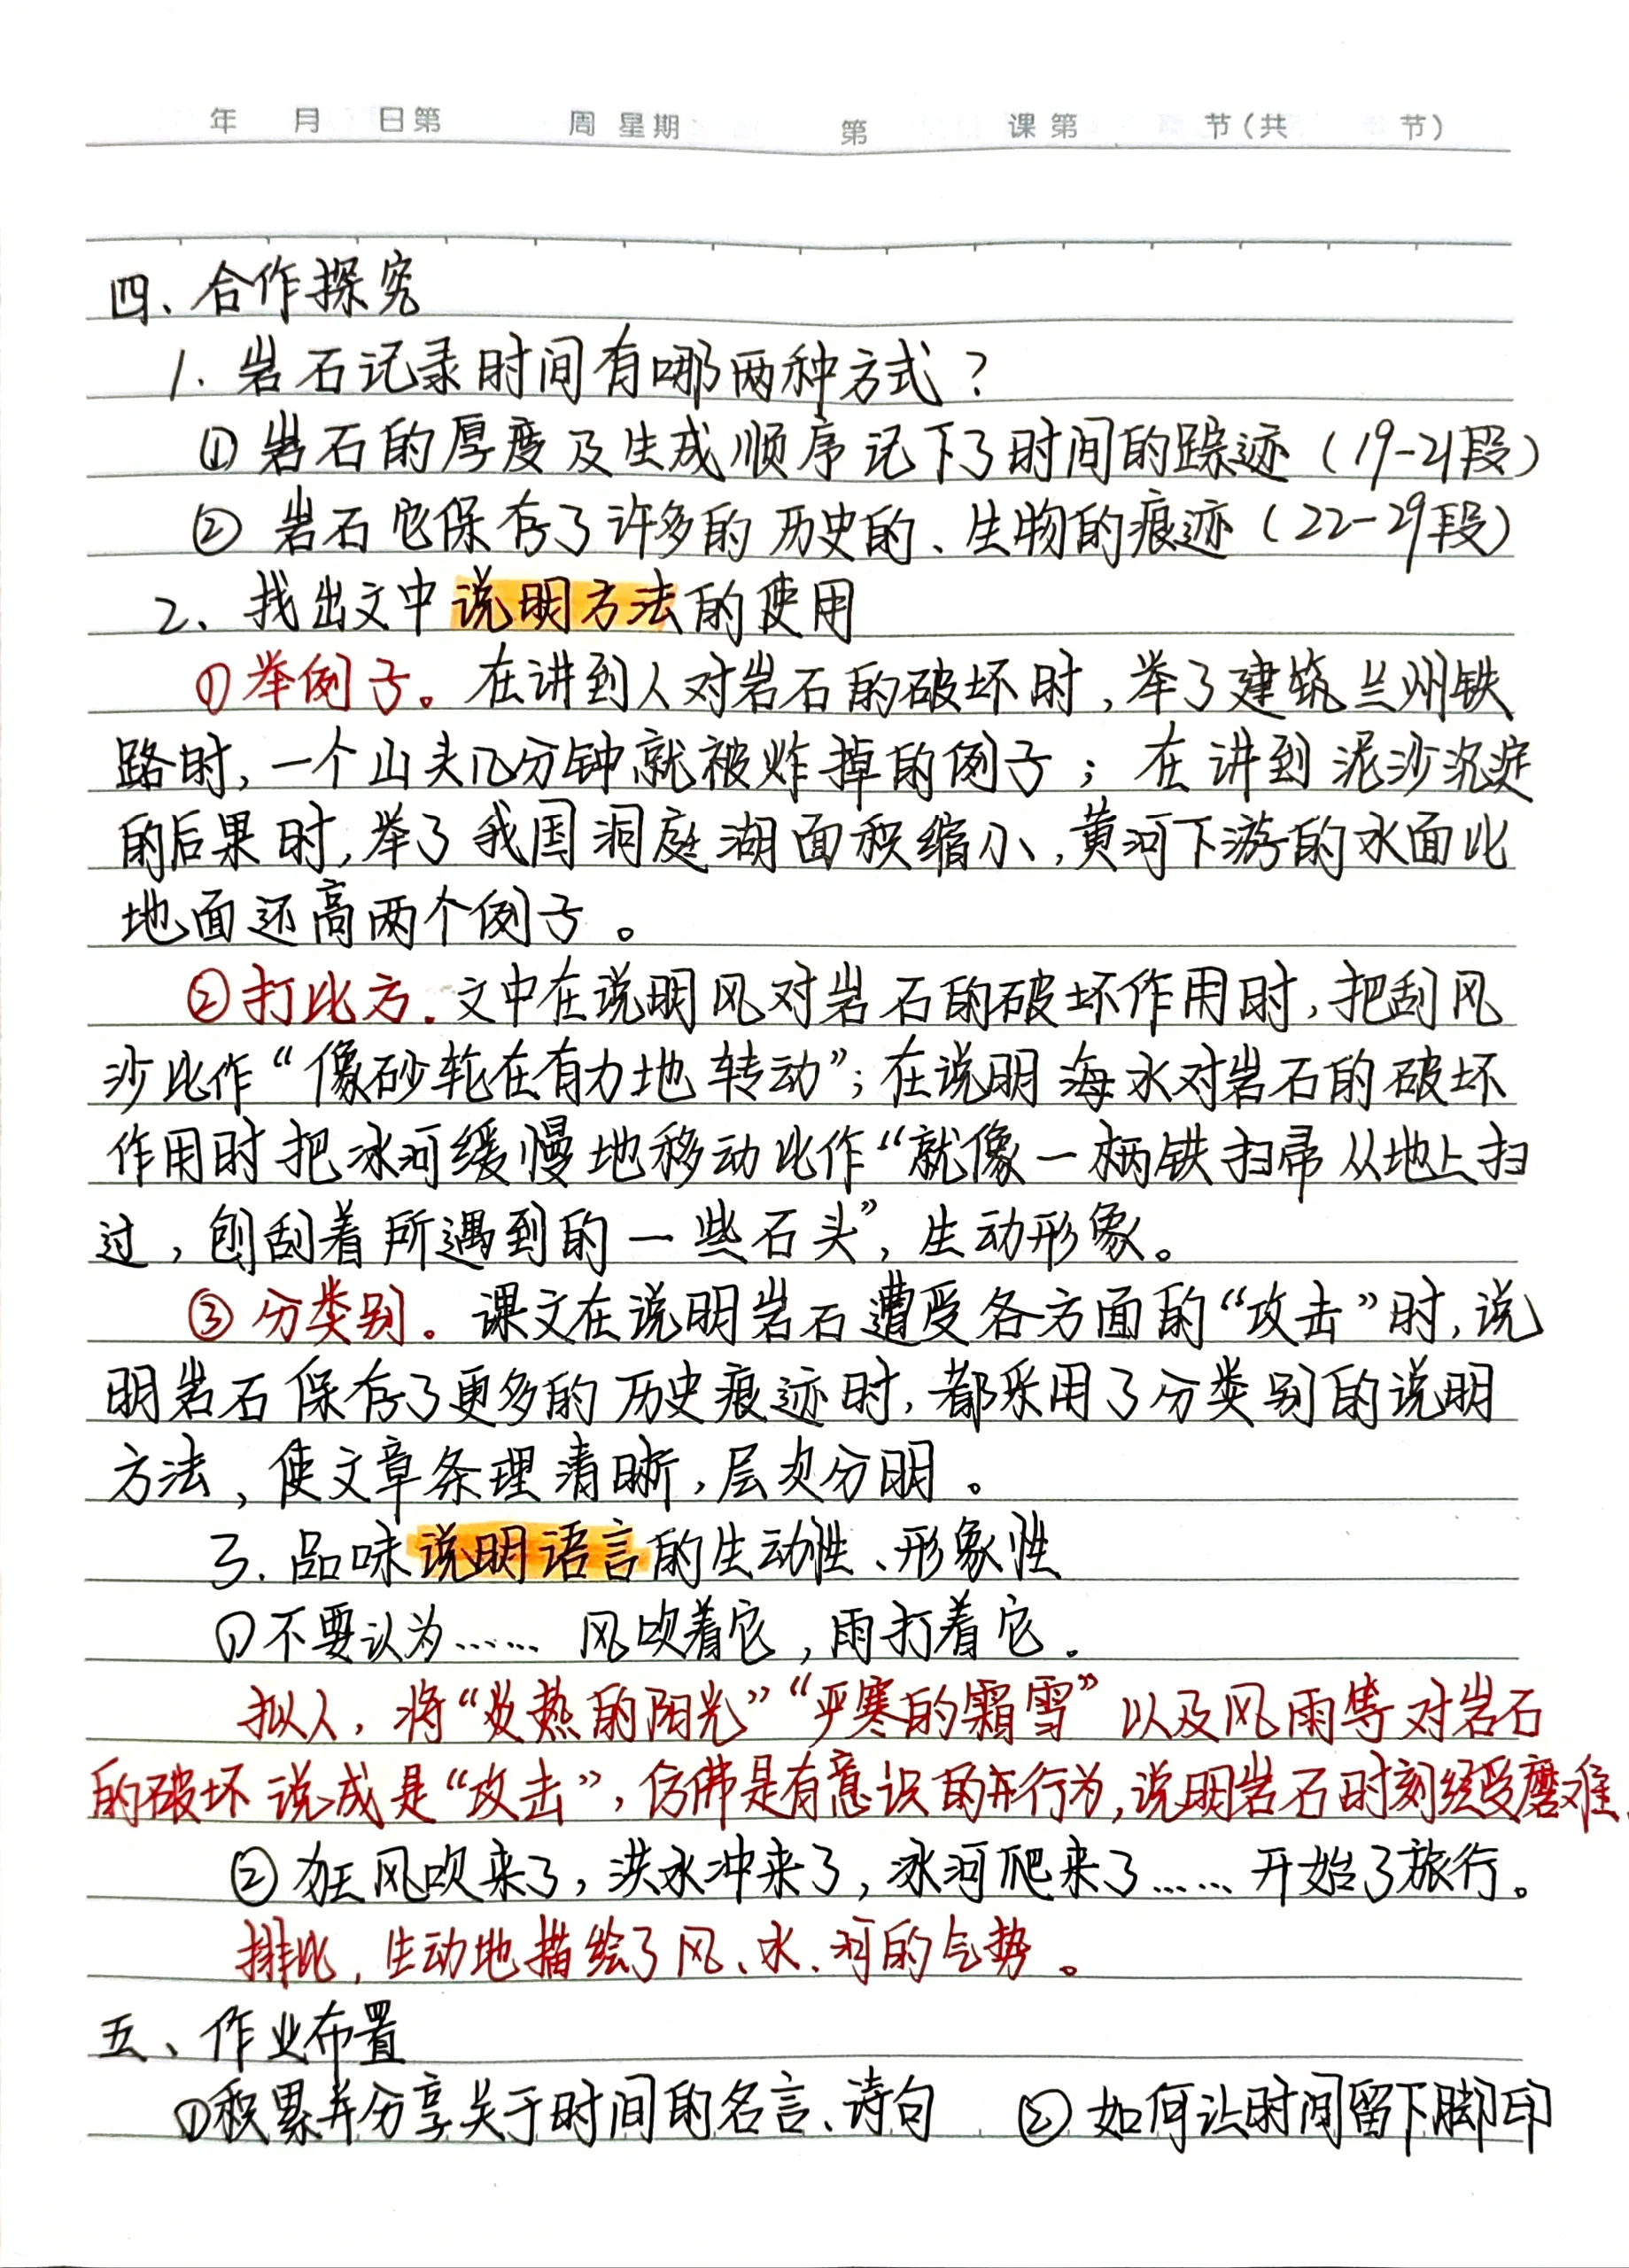 年 月 日第 周 星期 第 课第 节(共 节)
四、合作探究
1. 岩石记录时间有哪两种方式?
①岩石的厚度及生成顺序记下了时间的踪迹(19-21段)
② 岩石它保存了许多的历史的、生物的痕迹(22-29段)
2、找出文中说明方法的使用
①举例子。在讲到人对岩石的破坏时,举了建筑兰州铁
路时,一个山头几分钟就被炸掉的例子;在讲到泥沙沉淀
的后果时,举了我国洞庭湖面积缩小,黄河下游的水面比
地面还高两个例子。
②打比方.文中在说明风对岩石的破坏作用时,把刮风
沙比作“像砂轮在有力地转动”;在说明海水对岩石的破坏
作用时把冰河缓慢地移动比作“就像一柄铁扫帚从地上扫
过,刨刮着所遇到的一些石头”,生动形象。
③分类别。课文在说明岩石遭受各方面的“攻击”时,说
明岩石保存了更多的历史痕迹时,都采用了分类别的说明
方法,使文章条理清晰,层次分明。
3.品味说明语言的生动性、形象性
①不要认为……风吹着它,雨打着它.
拟人,将“炎热的阳光”“严寒的霜雪”以及风雨等对岩石
的破坏说成是“攻击”,仿佛是有意识的行为,说明岩石时刻经受磨难.
②狂风吹来了,洪水冲来了,冰河爬来了……开始了旅行。
排比,生动地描绘了风、水、河的气势。
五、作业布置
①积累并分享关于时间的名言、诗句 ②如何让时间留下脚印